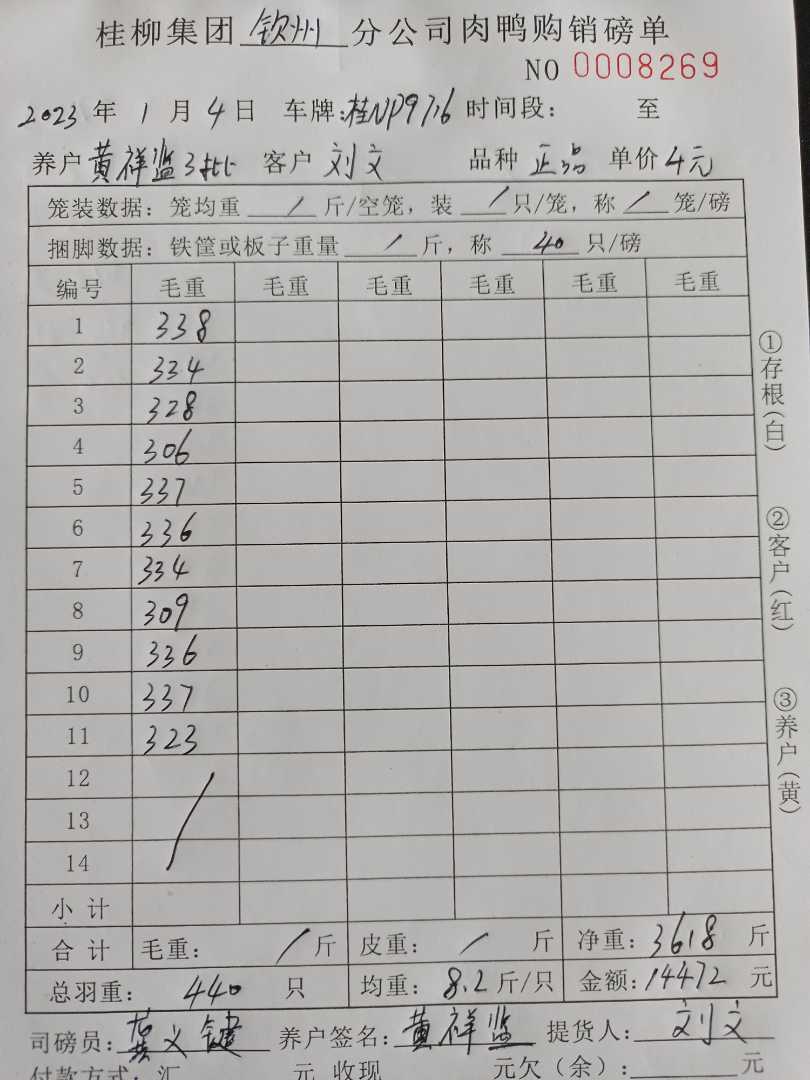 桂柳集团钦州分公司肉鸭购销磅单
NO 0008269
2023年1月4日 车牌:桂NP9716 时间段: 至
养户黄祥监3批 客户刘文 品种正品 单价4元
笼装数据：笼均重 / 斤/空笼，装 / 只/笼，称 / 笼/磅
捆脚数据：铁筐或板子重量 / 斤，称 40 只/磅
编号 毛重 毛重 毛重 毛重 毛重 毛重
1 338
2 334
3 328
4 306
5 337
6 336
7 334
8 309
9 336
10 337
11 323
12
13
14
小计
合计 毛重: / 斤 皮重: / 斤 净重:3618斤
总羽重: 440 只 均重:8.2斤/只 金额:14472元
司磅员:黄义键 养户签名:黄祥监 提货人:刘文
付款方式:汇 元 收现 元欠（余）: 元
①存根(白)
②客户(红)
③养户(黄)